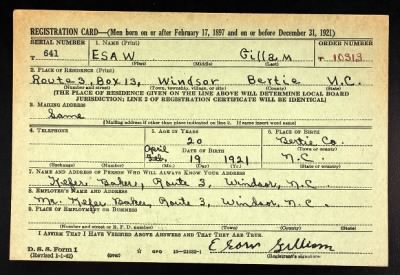 REGISTRATION CARD—(Men born on or after February 17, 1897 and on or before December 31, 1921)
SERIAL NUMBER 1. NAME (Print) ORDER NUMBER
T 641 ESAW Gillam 10313
(First) (Middle) (Last)
2. PLACE OF RESIDENCE (Print)
Route 3, Box 13, Windsor Bertie N.C.
(Number and street) (Town, township, village, or city) (County) (State)
[THE PLACE OF RESIDENCE GIVEN ON THE LINE ABOVE WILL DETERMINE LOCAL BOARD
JURISDICTION; LINE 2 OF REGISTRATION CERTIFICATE WILL BE IDENTICAL]
3. MAILING ADDRESS
Same
[Mailing address if other than place indicated on line 2. If same insert word same]
4. TELEPHONE 5. AGE IN YEARS 6. PLACE OF BIRTH
20 Bertie Co.
April DATE OF BIRTH (Town or county)
Feb. 19 1921 N.C.
(Exchange) (Number) (Mo.) (Day) (Yr.) (State or country)
7. NAME AND ADDRESS OF PERSON WHO WILL ALWAYS KNOW YOUR ADDRESS
Baker, Route 3, Windsor, N.C.
8. EMPLOYER'S NAME AND ADDRESS
Mr. Baker, Route 3, Windsor, N.C.
9. PLACE OF EMPLOYMENT OR BUSINESS
(Number and street or R. F. D. number) (Town) (County) (State)
I AFFIRM THAT I HAVE VERIFIED ABOVE ANSWERS AND THAT THEY ARE TRUE.
D. S. S. Form 1
(Revised 1-1-42) (over) GPO
(Registrant's signature)